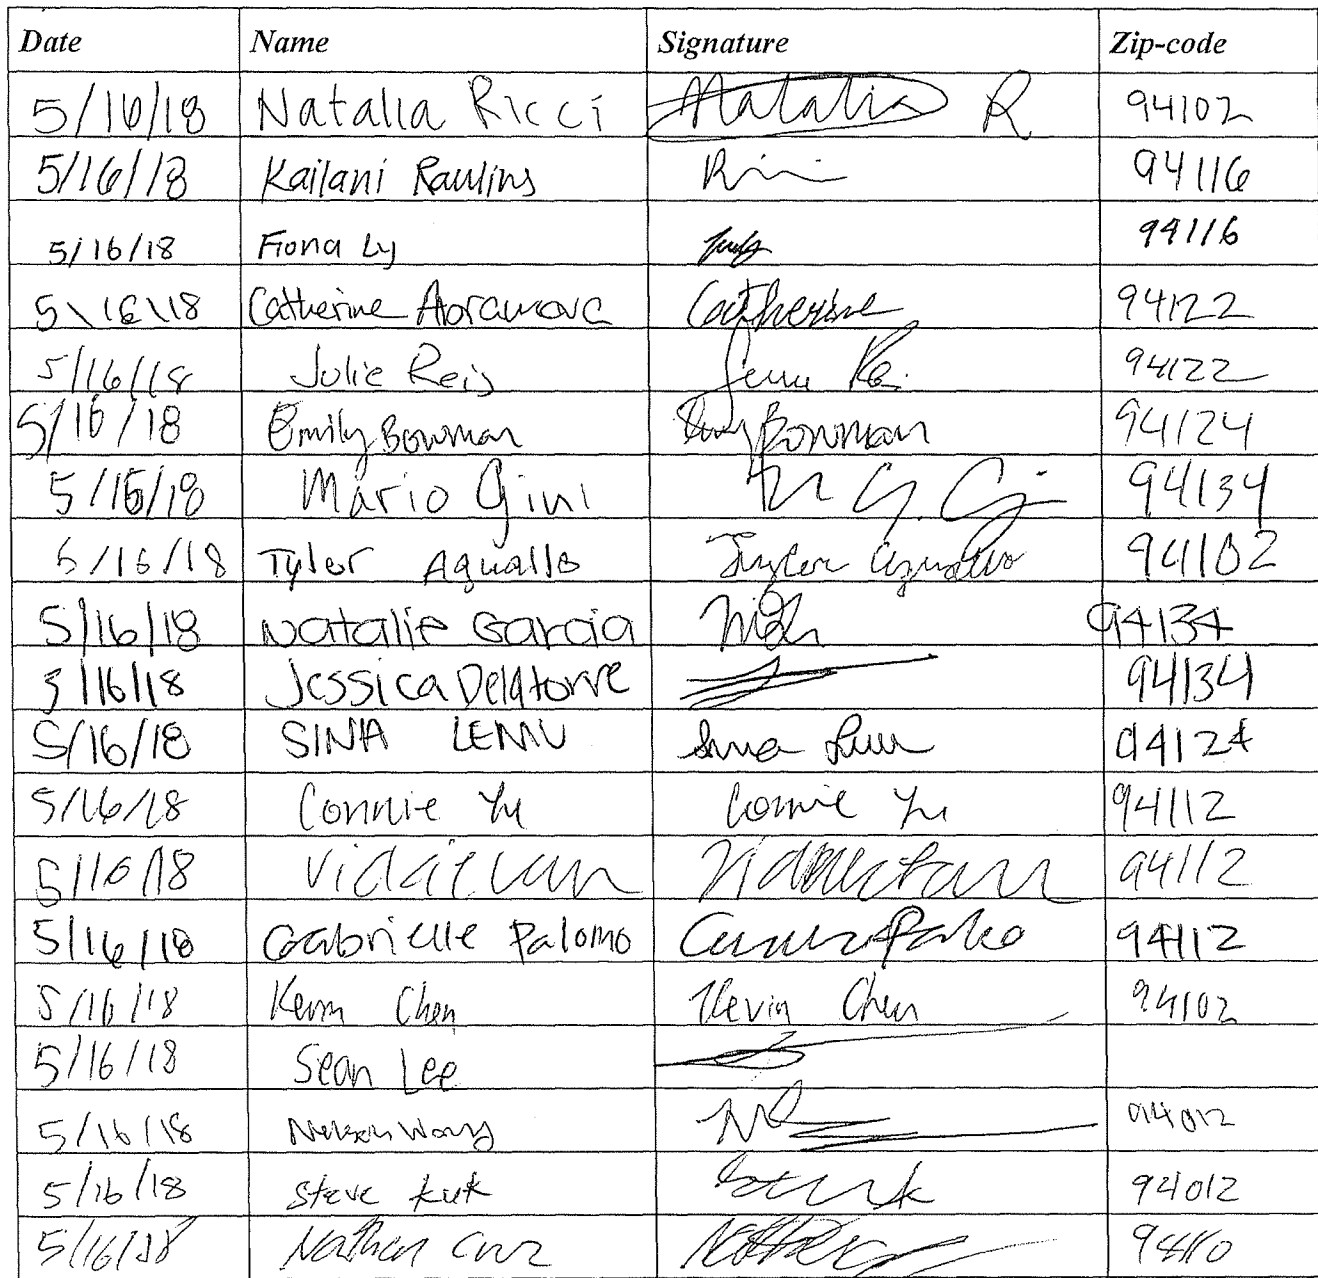 Date Name Signature Zip-code
5/16/18 Natalia Ricci Natalia R 94102
5/16/18 Kailani Rawlins 94116
5/16/18 Fiona Ly 94116
5\16\18 Catherine Abramova Catherine 94122
5/16/18 Julie Reis 94122
5/16/18 Emily Bowman Emily Bowman 94124
5/16/18 Mario Gini 94134
5/16/18 Tyler Aguallo Tyler Aguallo 94102
5/16/18 Natalie Garcia 94134
5/16/18 Jessica Delatorre 94134
5/16/18 SINA LEMU Sina 94124
5/16/18 Connie Yu Connie Yu 94112
5/16/18 94112
5/16/18 Gabrielle Palomo 94112
5/16/18 Kevin Chen Kevin Chen 94102
5/16/18 Sean Lee
5/16/18 Nelson Wong 94012
5/16/18 Steve Kuk 94012
5/16/18 Nathan Cruz 94110